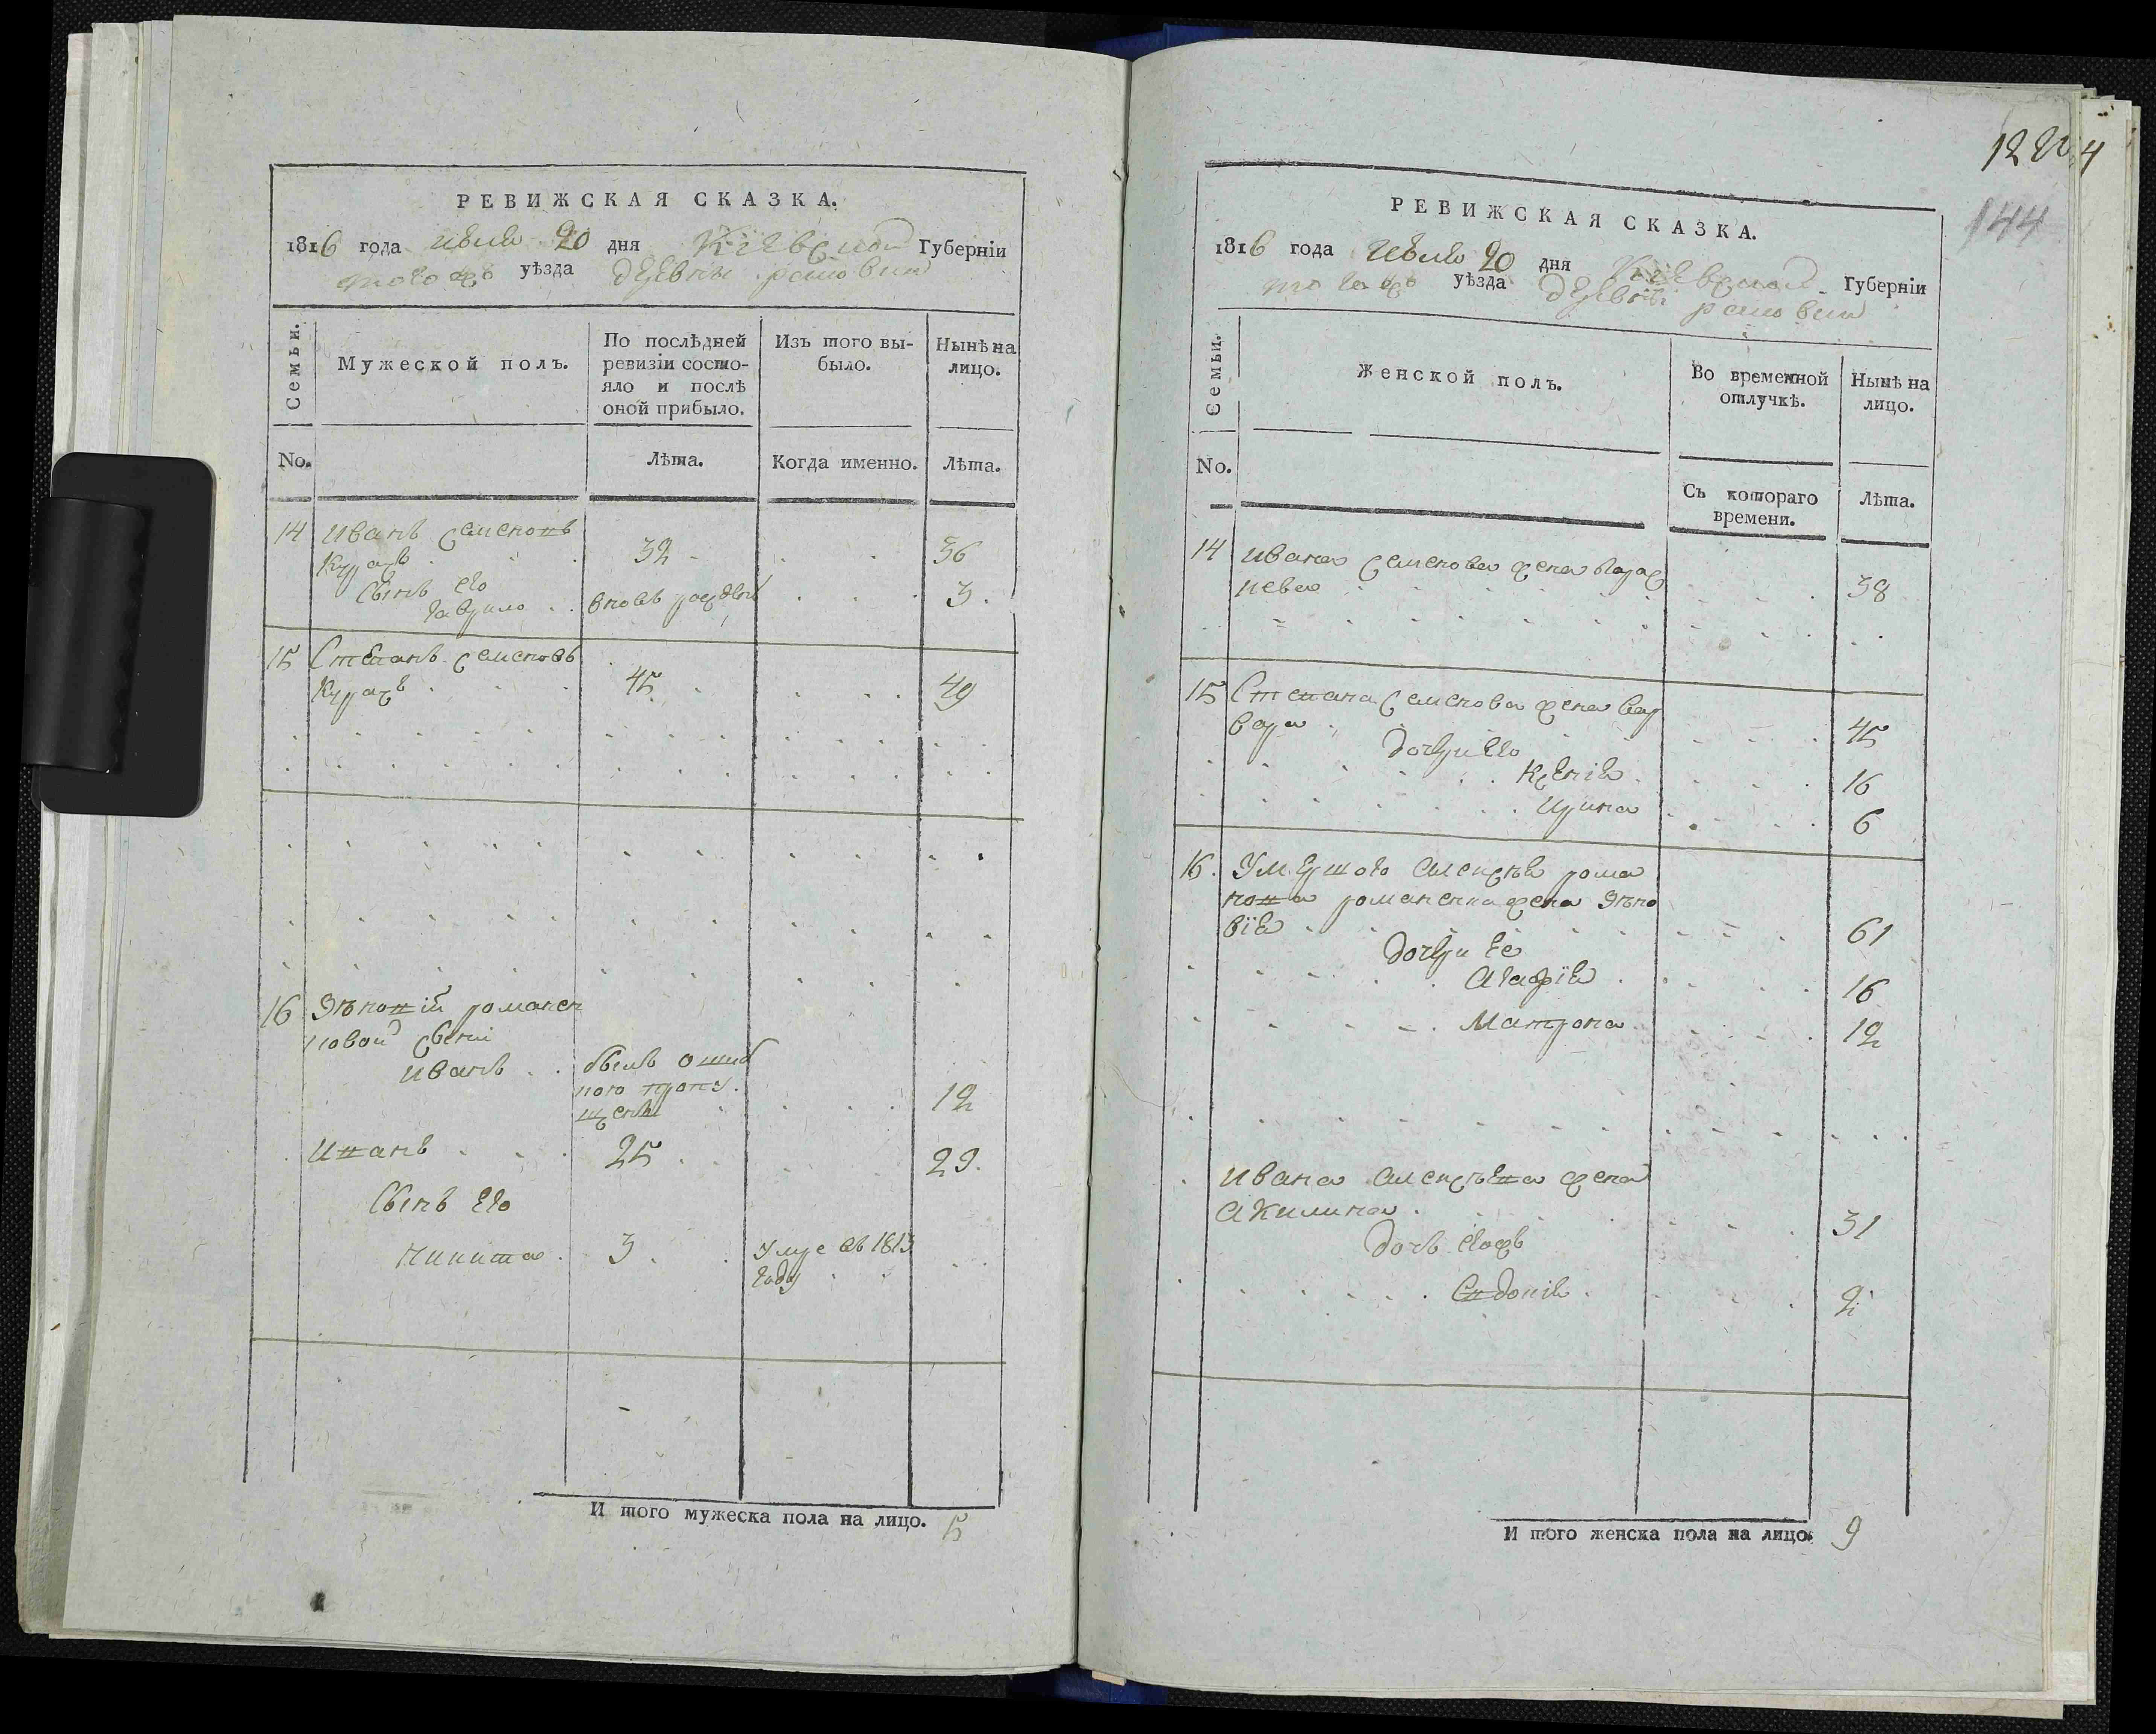 РЕВИЖСКАЯ СКАЗКА.
1816 года июля 20 дня Кіевской Губерніи
тогожъ уѣзда деревни
Семьи.
Мужеской полъ.
По послѣдней
ревизіи состо-
яло и послѣ
оной прибыло.
Изъ того вы-
было.
Нынѣ на
лицо.
No.
Лѣта.
Когда именно.
Лѣта.
14 Иванъ Семеновъ
32 36
Сынъ его
Гаврило вновь рожденъ 3
15 Степанъ Семеновъ
45 49
16 Зѣновіи романен
ковой сыни
Иванъ былъ ошиб
кого пропу
щенъ 12
Иванъ 25 29
Сынъ его
Никита 3 умре въ 1813
году
И того мужеска пола на лицо. 5
12
144
РЕВИЖСКАЯ СКАЗКА.
1816 года июля 20 дня Кіевской Губерніи
тогожъ уѣзда деревни
Семьи.
Женской полъ.
Во временной
отлучкѣ.
Нынѣ на
лицо.
No.
Съ котораго
времени.
Лѣта.
14 Ивана Семенова жена
38
15 Степана Семенова жена вар
вара 45
дочери его
Ксенія 16
Ирина 6
16 Умершого Алексѣя рома
нова романенка жена Зѣно
вія 61
дочери ее
Агафія 16
Матрона 12
Ивана Алексѣева жена
Акилина 31
дочь егожъ
Евдокія 2
И того женска пола на лицо. 9